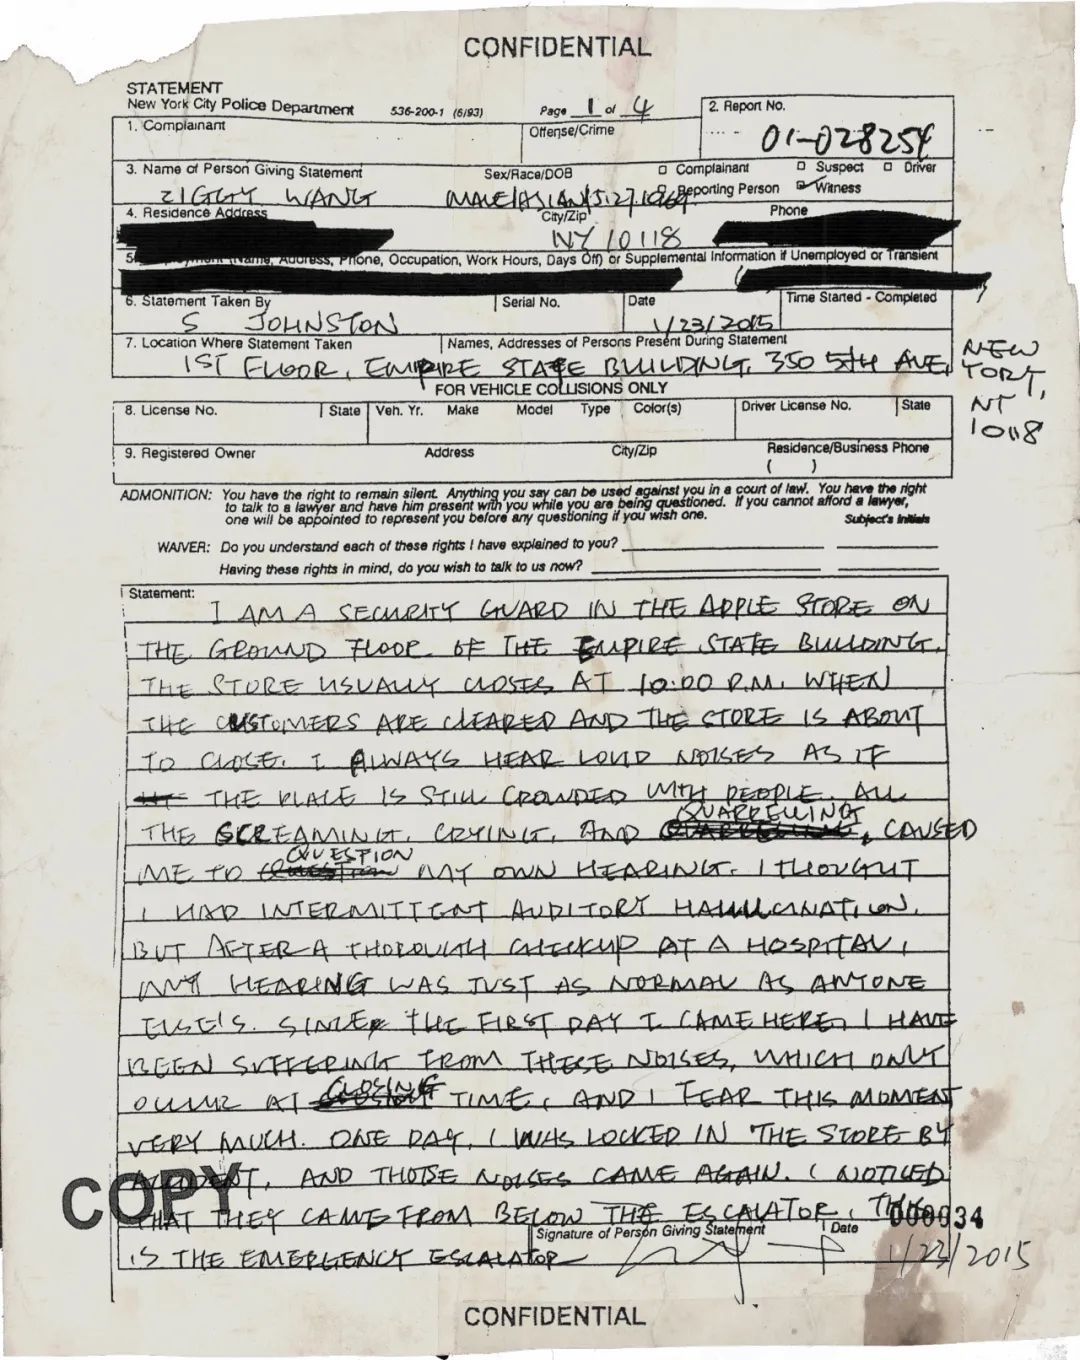 CONFIDENTIAL
STATEMENT
New York City Police Department 536-200-1 (6/93) Page 1 of 4
2. Report No.
01-028254
1. Complainant
Offense/Crime
3. Name of Person Giving Statement Sex/Race/DOB
Complainant Suspect Driver
Reporting Person Witness
ZIGGY WANG MALE/ASIAN/5.27.1969
4. Residence Address City/Zip Phone
NY 10118
(Name, Address, Phone, Occupation, Work Hours, Days Off) or Supplemental Information if Unemployed or Transient
6. Statement Taken By Serial No. Date Time Started - Completed
S JOHNSTON 1/23/2015
7. Location Where Statement Taken Names, Addresses of Persons Present During Statement
1ST FLOOR, EMPIRE STATE BUILDING, 350 5TH AVE,
NEW
YORK,
NY
10118
FOR VEHICLE COLLISIONS ONLY
8. License No. State Veh. Yr. Make Model Type Color(s) Driver License No. State
9. Registered Owner Address City/Zip Residence/Business Phone
( )
ADMONITION: You have the right to remain silent. Anything you say can be used against you in a court of law. You have the right
to talk to a lawyer and have him present with you while you are being questioned. If you cannot afford a lawyer,
one will be appointed to represent you before any questioning if you wish one.
Subject's Initials
WAIVER: Do you understand each of these rights I have explained to you?
Having these rights in mind, do you wish to talk to us now?
Statement:
I AM A SECURITY GUARD IN THE APPLE STORE ON
THE GROUND FLOOR OF THE EMPIRE STATE BUILDING.
THE STORE USUALLY CLOSES AT 10:00 P.M. WHEN
THE CUSTOMERS ARE CLEARED AND THE STORE IS ABOUT
TO CLOSE. I ALWAYS HEAR LOUD NOISES AS IF
THE PLACE IS STILL CROWDED WITH PEOPLE. ALL
THE SCREAMING, CRYING, AND QUARRELLING, CAUSED
ME TO QUESTION MY OWN HEARING. I THOUGHT
I HAD INTERMITTENT AUDITORY HALLUCINATION.
BUT AFTER A THOROUGH CHECKUP AT A HOSPITAL,
MY HEARING WAS JUST AS NORMAL AS ANYONE
ELSE'S. SINCE THE FIRST DAY I CAME HERE, I HAVE
BEEN SUFFERING FROM THESE NOISES, WHICH ONLY
OCCUR AT CLOSING TIME, AND I FEAR THIS MOMENT
VERY MUCH. ONE DAY, I WAS LOCKED IN THE STORE BY
ACCIDENT, AND THOSE NOISES CAME AGAIN. I NOTICED
THAT THEY CAME FROM BELOW THE ESCALATOR, THIS
IS THE EMERGENCY ESCALATOR
COPY
000034
Signature of Person Giving Statement Date
1/23/2015
CONFIDENTIAL